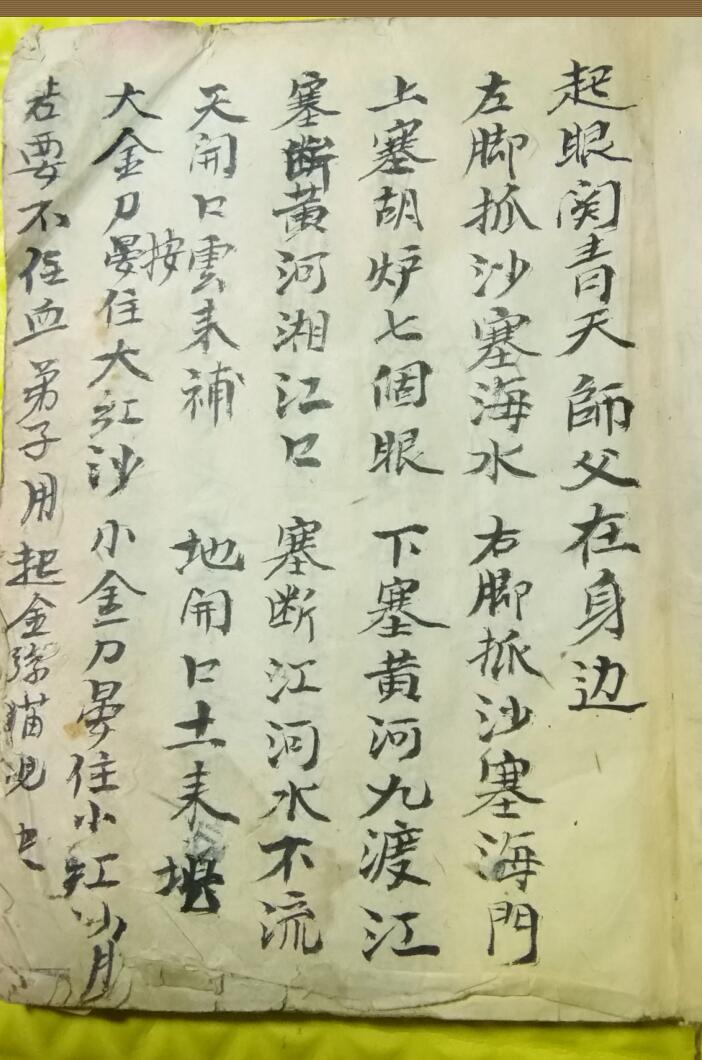 起眼関青天師父在身边
左脚抓沙塞海水右脚抓沙塞海門
上塞胡炉七個眼下塞黄河九渡江
塞断黄河湘江口塞断江河水不流
天開口雲来補地開口土来
按
大金刀晏住大紅沙小金刀晏住小紅沙
若要不住血弟子用起金猫児